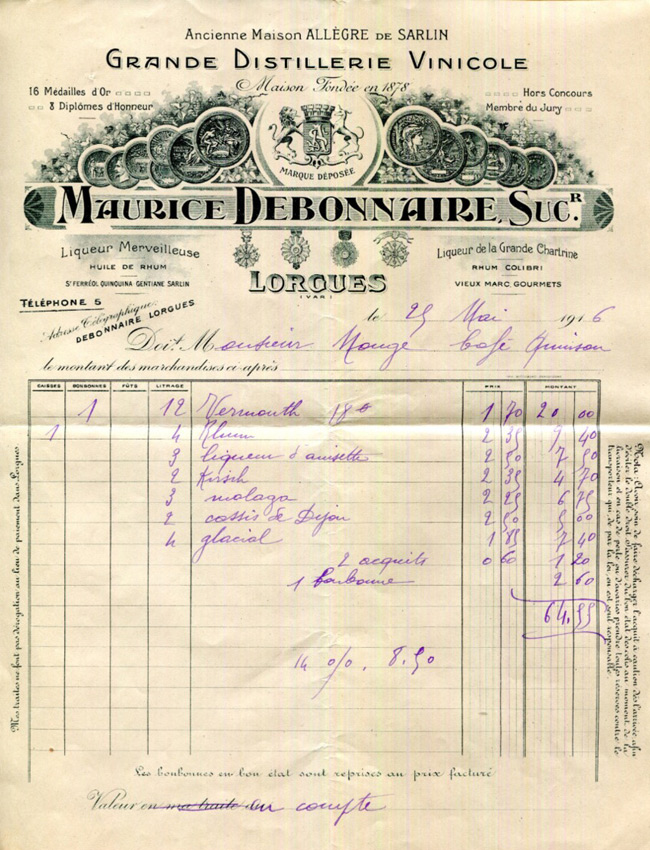 Ancienne Maison ALLÈGRE DE SARLIN
GRANDE DISTILLERIE VINICOLE
Maison Fondée en 1878
16 Médailles d'Or
8 Diplômes d'Honneur
Hors Concours
Membre du Jury
MARQUE DÉPOSÉE
MAURICE DEBONNAIRE, SUCR.
Liqueur Merveilleuse
HUILE DE RHUM
ST FERRÉOL QUINQUINA GENTIANE SARLIN
Liqueur de la Grande Chartrine
RHUM COLIBRI
VIEUX MARC GOURMETS
LORGUES
(VAR)
TÉLÉPHONE 5
Adresse Télégraphique
DEBONNAIRE LORGUES
le 25 Mai 1916
Doit M onsieur Café
le montant des marchandises ci-après
CAISSES BONBONNES FÛTS LITRAGE PRIX MONTANT
1 12 Vermouth 18° 1 70 20 00
1 4 Rhum 2 35 9 40
3 liqueur d'anisette 2 50 7 50
2 Kirsch 2 35 4 70
3 malaga 2 25 6 75
2 cassis de Dijon 2 50 5 00
4 glacial 1 85 7 40
2 acquits 0 60 1 20
1 bonbonne 2 60
64.55
14 o/o. 8.50
Les bonbonnes en bon état sont reprises au prix facturé
Valeur en ma traite au en compte
Mes traites ne font pas dérogation au lieu de paiement dans Lorgues.
Nota: Avoir soin de faire décharger l'acquit à caution dès l'arrivée afin
d'éviter le double droit et s'assurer du bon état des colis au moment de la
livraison et en cas de perte ou d'avaries prendre toutes réserves contre le
transporteur qui de par la loi en est seul responsable.